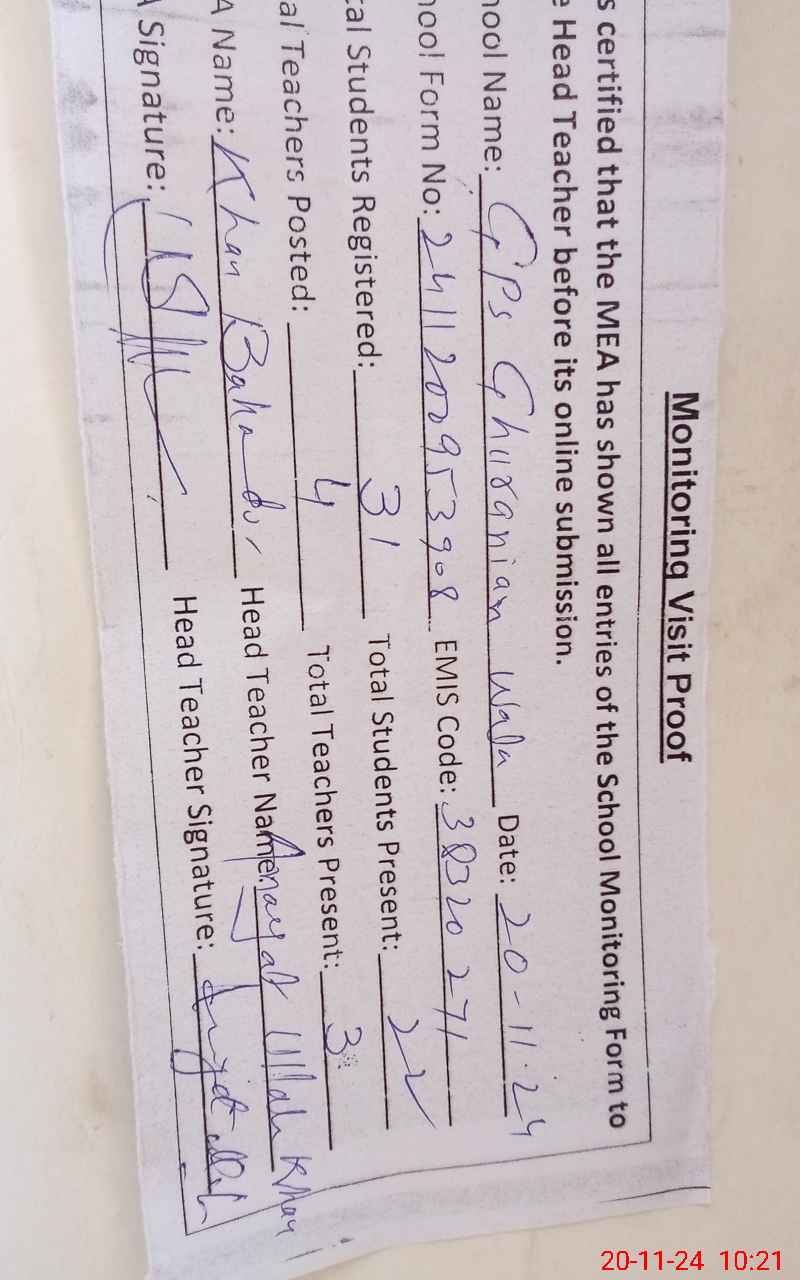 Monitoring Visit Proof
s certified that the MEA has shown all entries of the School Monitoring Form to
e Head Teacher before its online submission.
hool Name: GPS Ghuraniam Wala Date: 20-11-24
hool Form No: 2411200953908 EMIS Code: 38320271
tal Students Registered: 31 Total Students Present: 22
al Teachers Posted: 4 Total Teachers Present: 3
A Name: Khan Bahadur Head Teacher Name: Anayat Ullah Khan
A Signature: Head Teacher Signature:
20-11-24 10:21